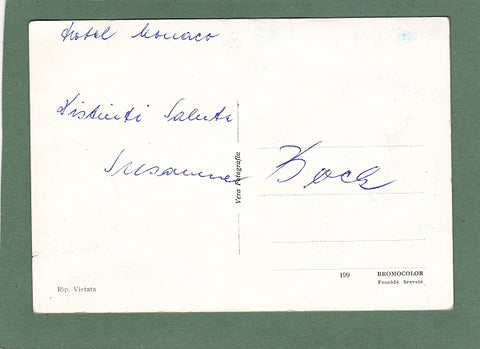 Hotel Monaco
Distinti Saluti
Susanne Bock
Vera Fotografia
199 BROMOCOLOR
Procédé breveté
Rip. Vietata